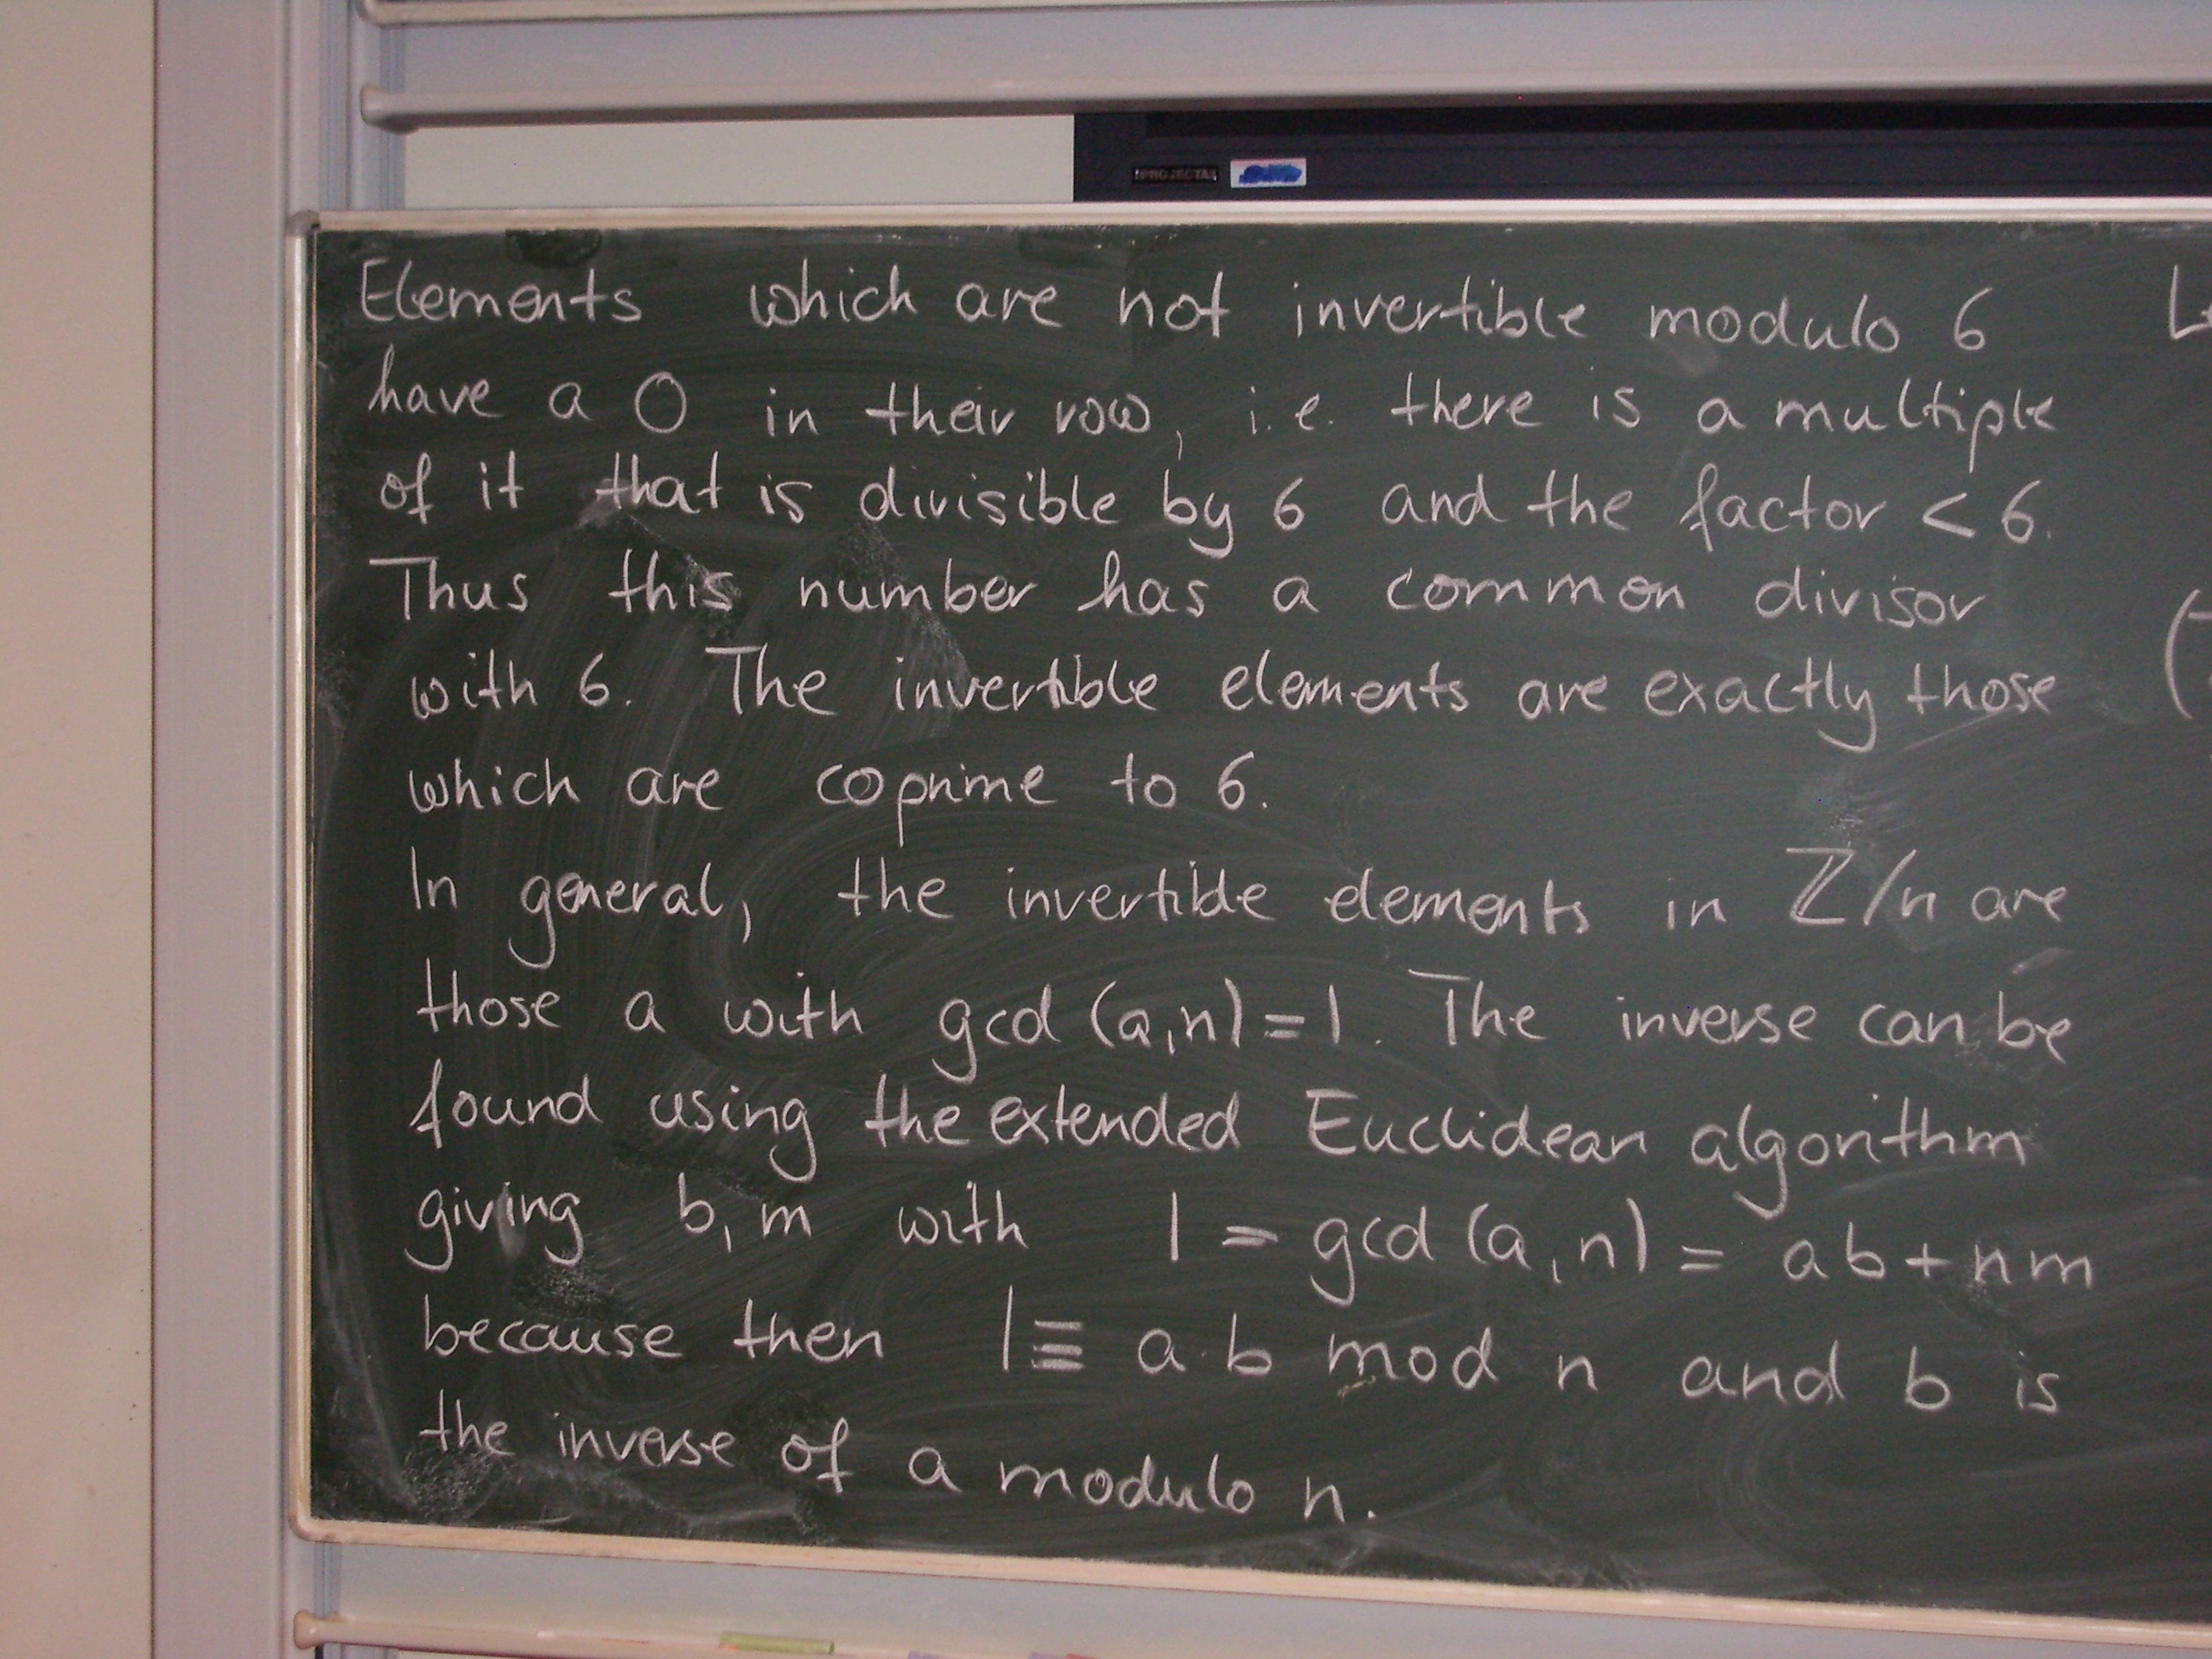 PROJECTA
Elements which are not invertible modulo 6
have a 0 in their row, i.e. there is a multiple
of it that is divisible by 6 and the factor < 6.
Thus this number has a common divisor
with 6. The invertible elements are exactly those
which are coprime to 6.
In general, the invertible elements in ℤ/n are
those a with gcd (a,n) = 1. The inverse can be
found using the extended Euclidean algorithm
giving b, m with 1 = gcd (a, n) = ab + nm
because then 1 ≡ a·b mod n and b is
the inverse of a modulo n.